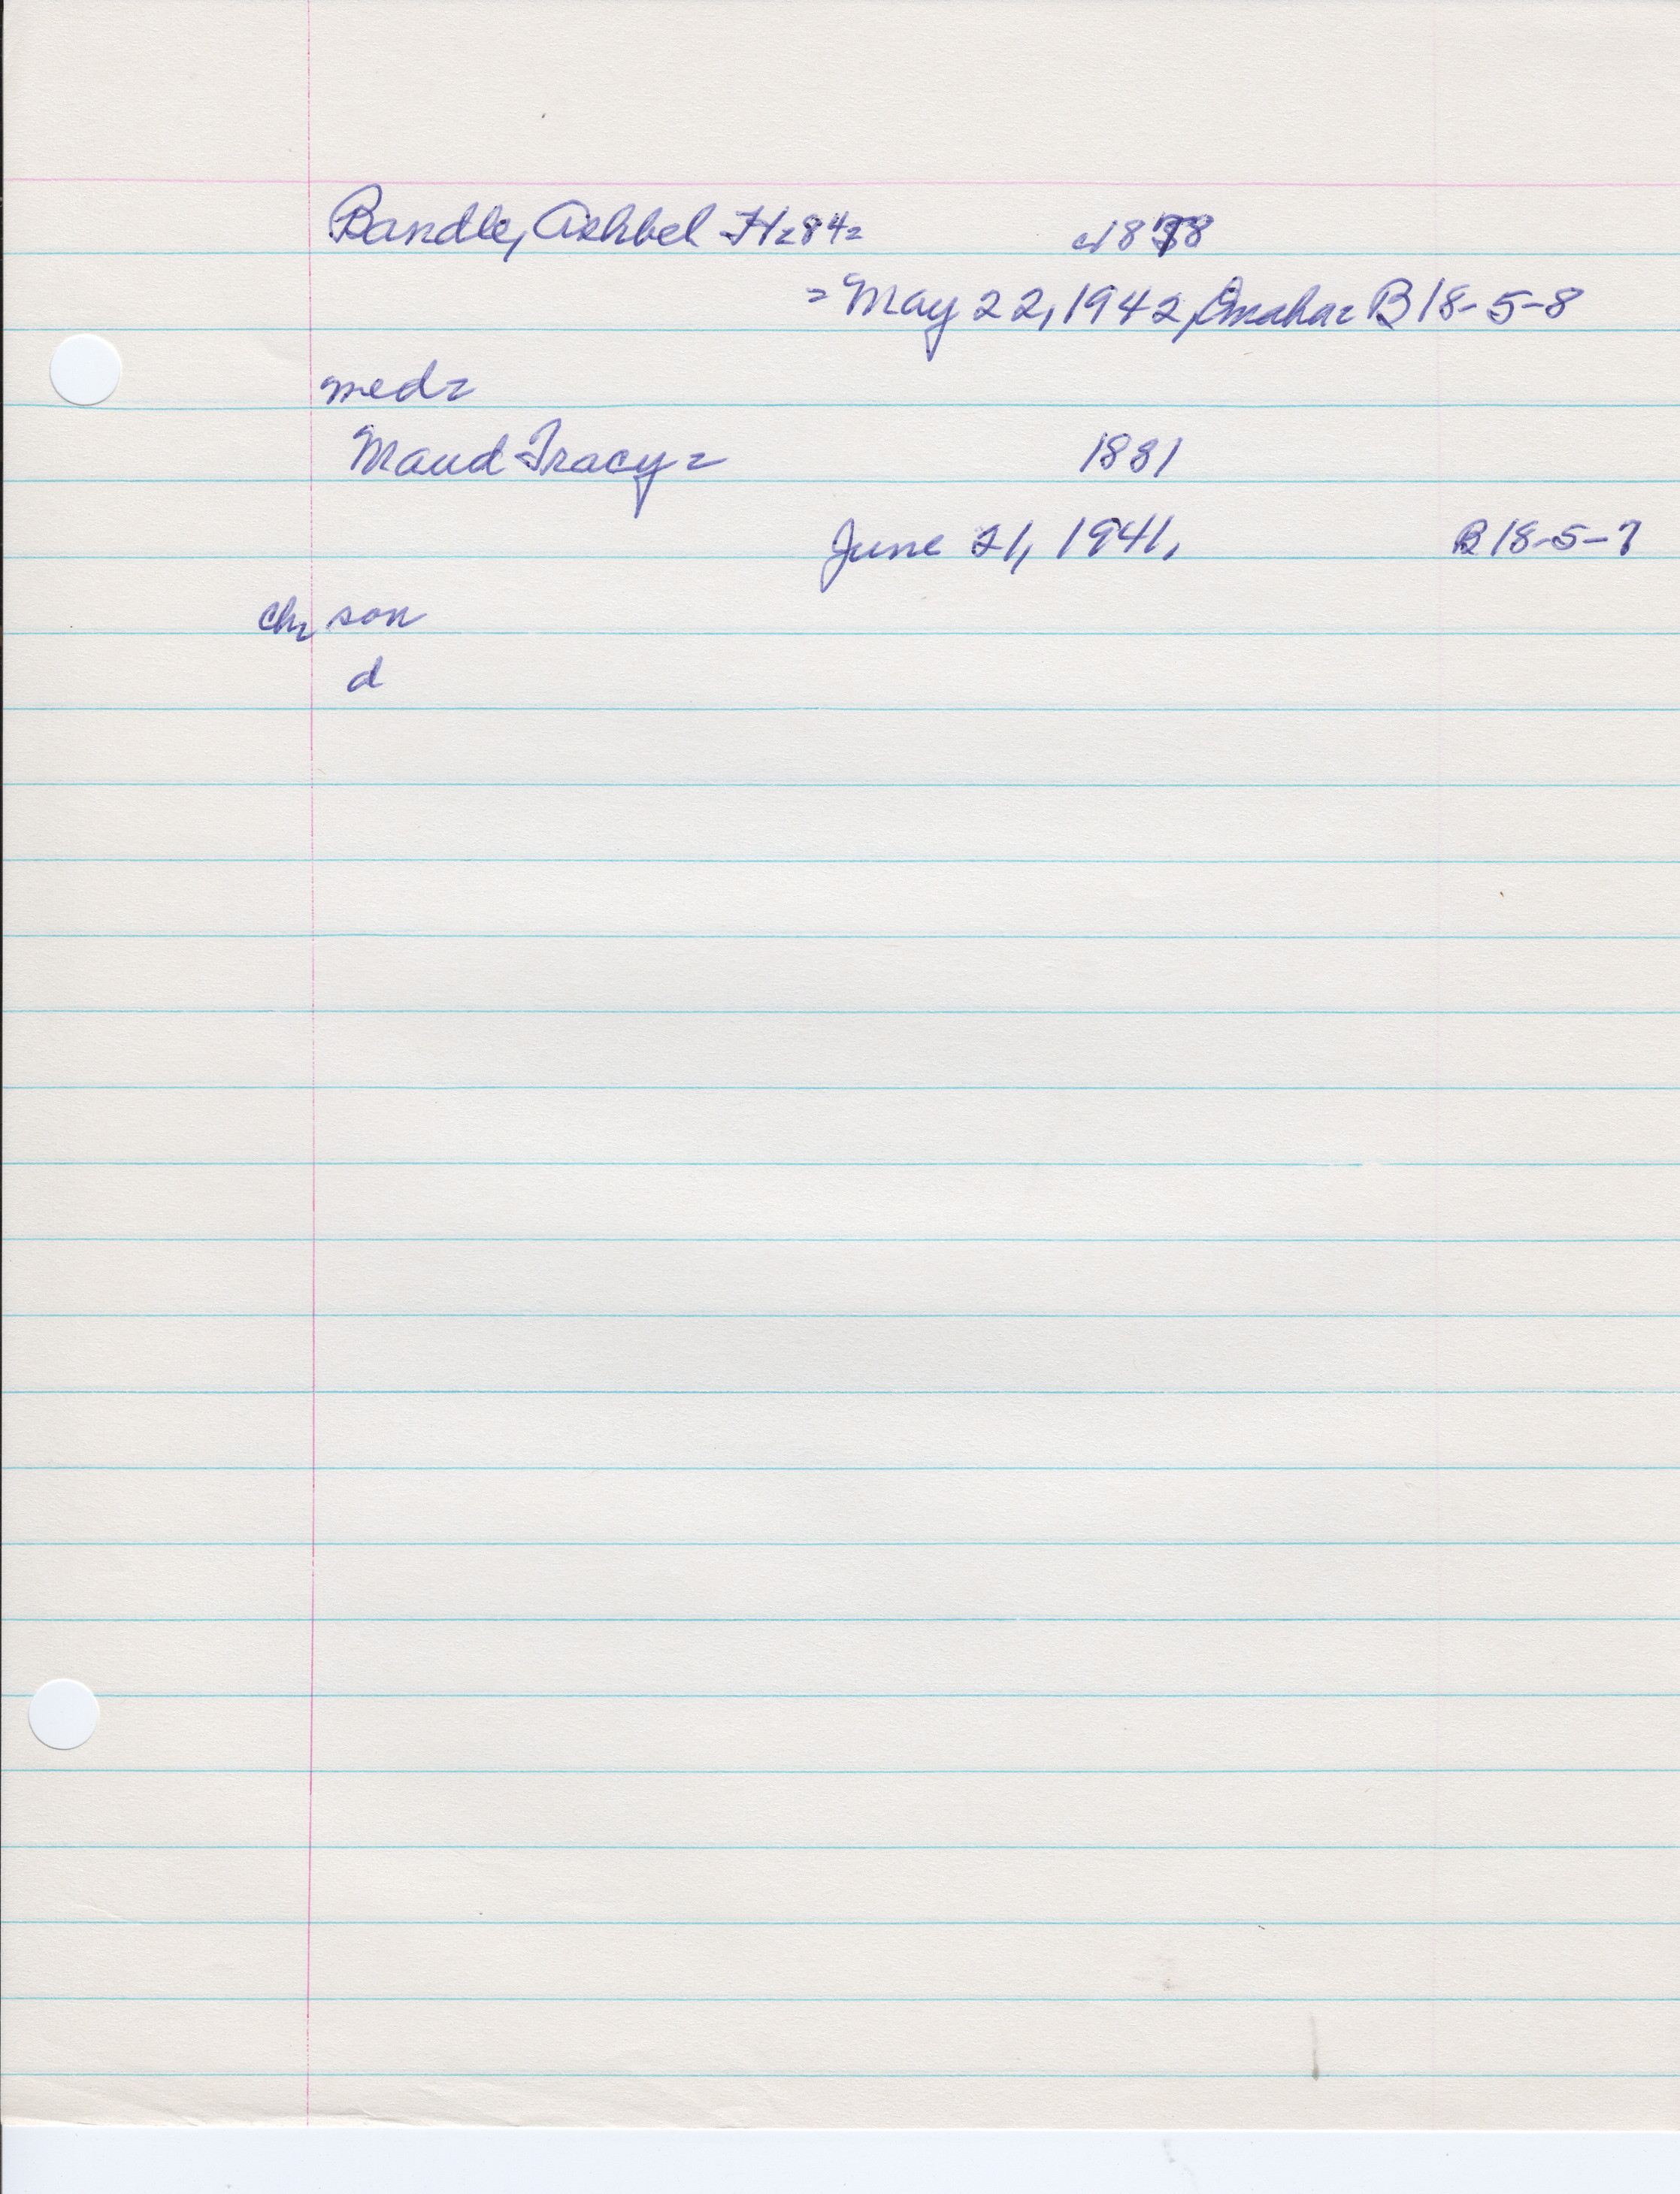 Bandle, Ashbel H= 84= c/1878
= May 22, 1942, Omaha= B 18-5-8
med=
Maud Tracy = 1881
June 21, 1941, B 18-5-7
ch= son
d